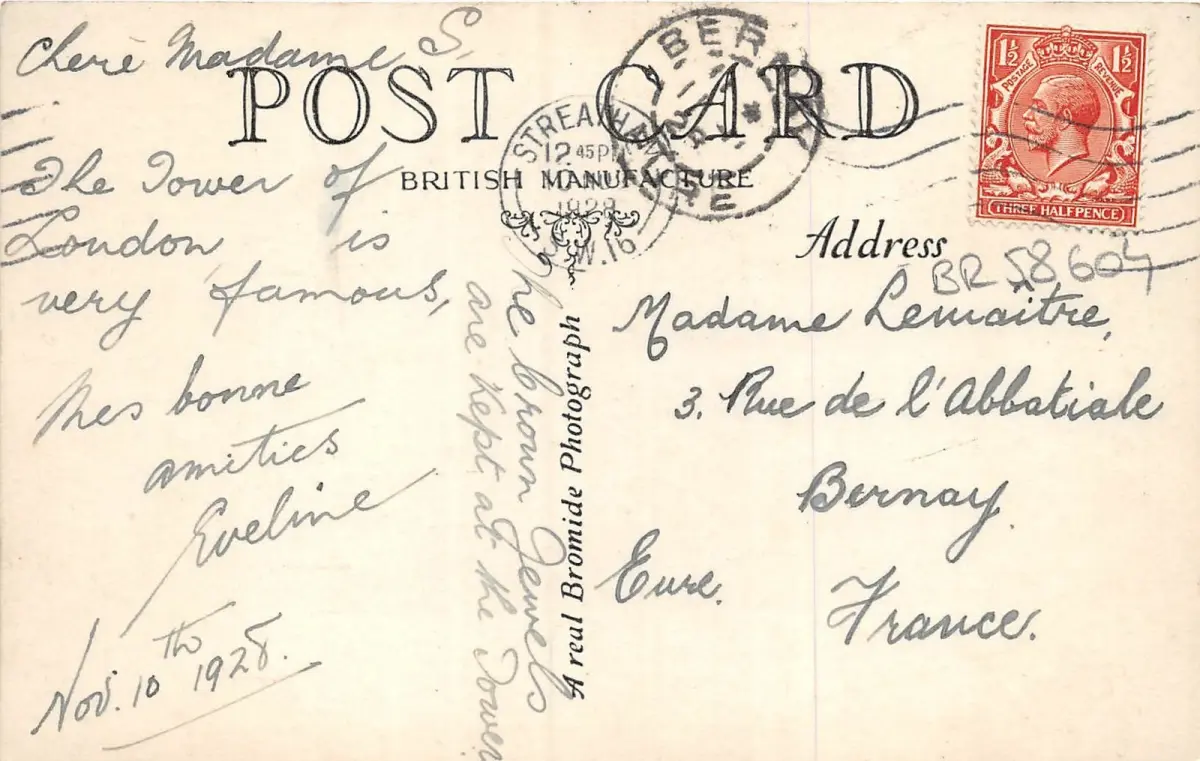 Cherè Madame S,
POST CARD
BRITISH MANUFACTURE
The Tower of
London is
very famous,
Mes bonne
amitics
Eveline
Nov. 10th 1928.
The Crown Jewels
are Kept at the Tower
A real Bromide Photograph
BERNAY
EURE
STREATHAM
12 45 PM
1928
S.W.16
1½ 1½
POSTAGE REVENUE
THREE HALFPENCE
Address
BR 58604
Madame Lemaître,
3, Rue de l'Abbatiale
Bernay.
Eure.
France.